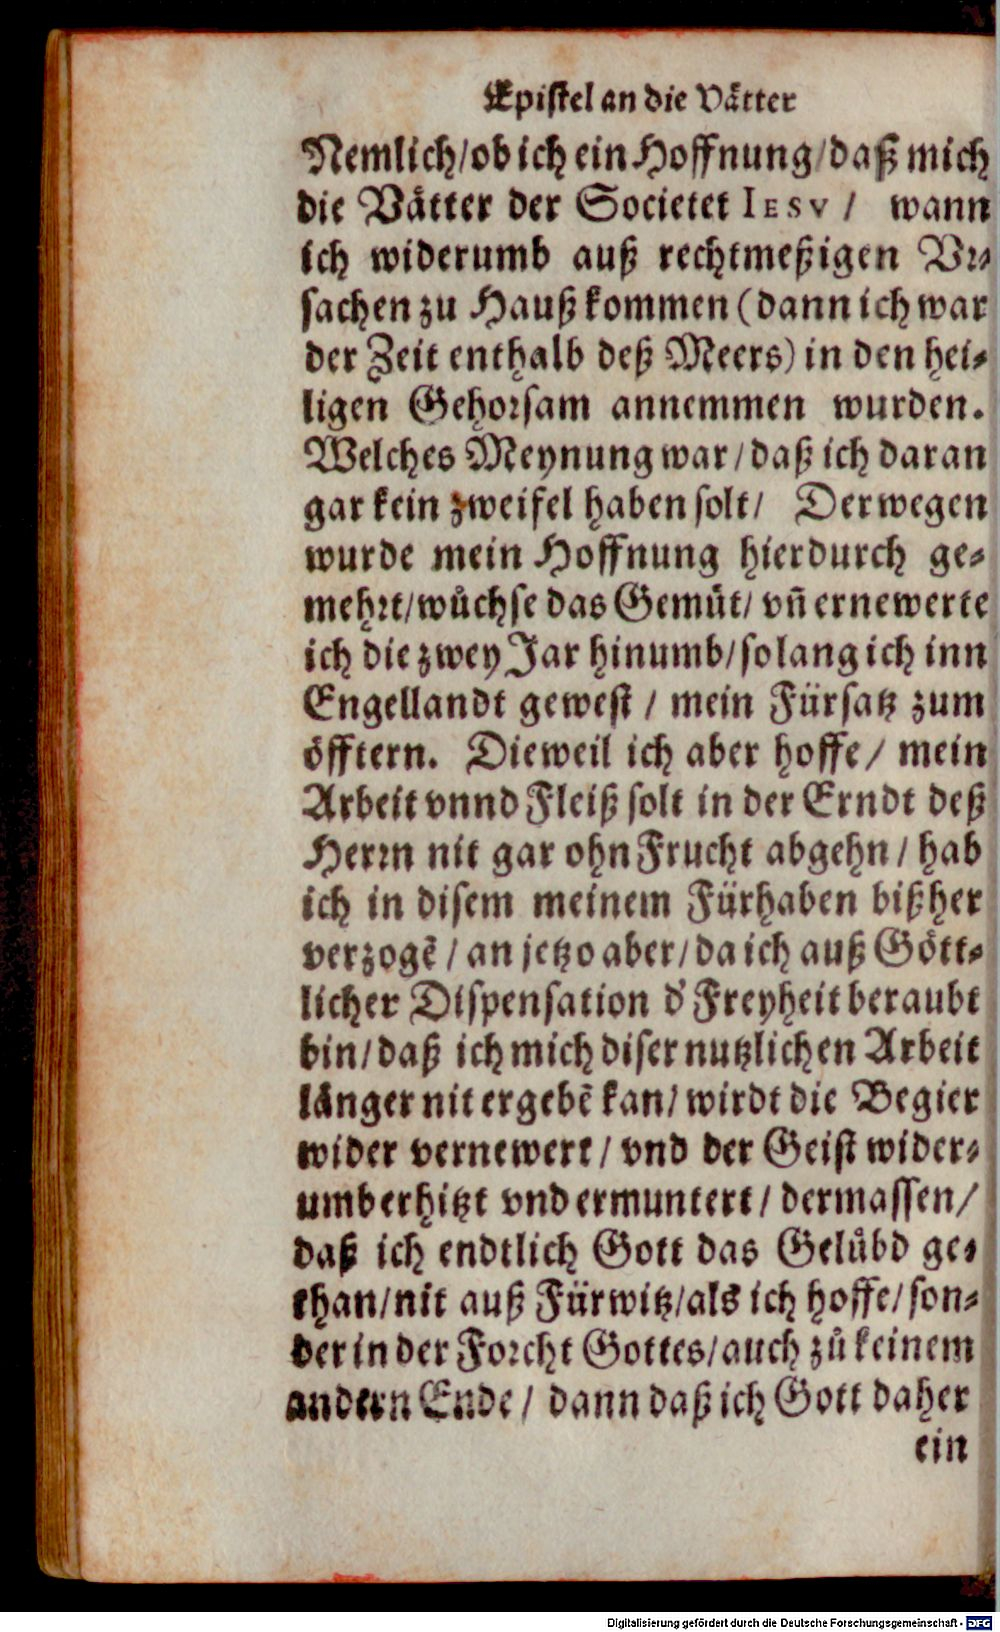 Epistel an die Vätter
Nemlich/ob ich ein Hoffnung/daß mich
die Vätter der Societet IESV / wann
ich widerumb auß rechtmeßigen Vr-
sachen zu Hauß kommen (dann ich war
der Zeit enthalb deß Meers) in den hei-
ligen Gehorsam annemmen wurden.
Welches Meynung war/daß ich daran
gar kein zweifel haben solt/ Derwegen
wurde mein Hoffnung hierdurch ge-
mehrt/wůchse das Gemüt/ vñ ernewerte
ich die zwey Jar hinumb/so lang ich inn
Engellandt gewest / mein Fürsatz zum
öfftern. Dieweil ich aber hoffe/ mein
Arbeit vnnd Fleiß solt in der Erndt deß
Herrn nit gar ohn Frucht abgehn/ hab
ich in disem meinem Fürhaben bißher
verzogẽ/ an jetzo aber/da ich auß Gött-
licher Dispensation d' Freyheit beraubt
bin/daß ich mich diser nutzlichen Arbeit
länger nit ergebẽ kan/ wirdt die Begier
wider vernewert/ vnd der Geist wider-
umb erhitzt vnd ermuntert/ dermassen/
daß ich endtlich Gott das Gelübd ge-
than/nit auß Fürwitz/als ich hoffe/son-
der in der Forcht Gottes/auch zů keinem
andern Ende/ dann daß ich Gott daher
ein
Digitalisierung gefördert durch die Deutsche Forschungsgemeinschaft - DFG